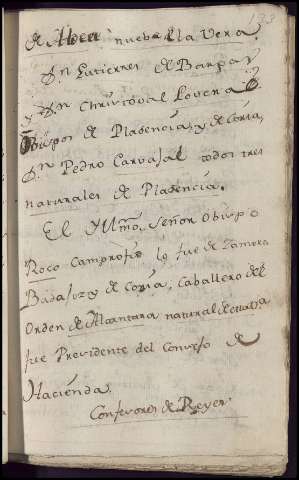 133
de Aldea nueba d la Vera
Dn Gutierres de Bargas
y Dn Christoval Lovera
Obispos de Plasencia, y de Coria,
Dn Pedro Carvajal todos tres
naturales de Plasencia.
El Yllmo. Señor Obispo
Roco Campofrio lo fue de Zamora
Badajoz y de Coria, Caballero del
Orden de Alcantara natural de
fue Presidente del Consejo de
Hacienda.
Confesores de Reyes